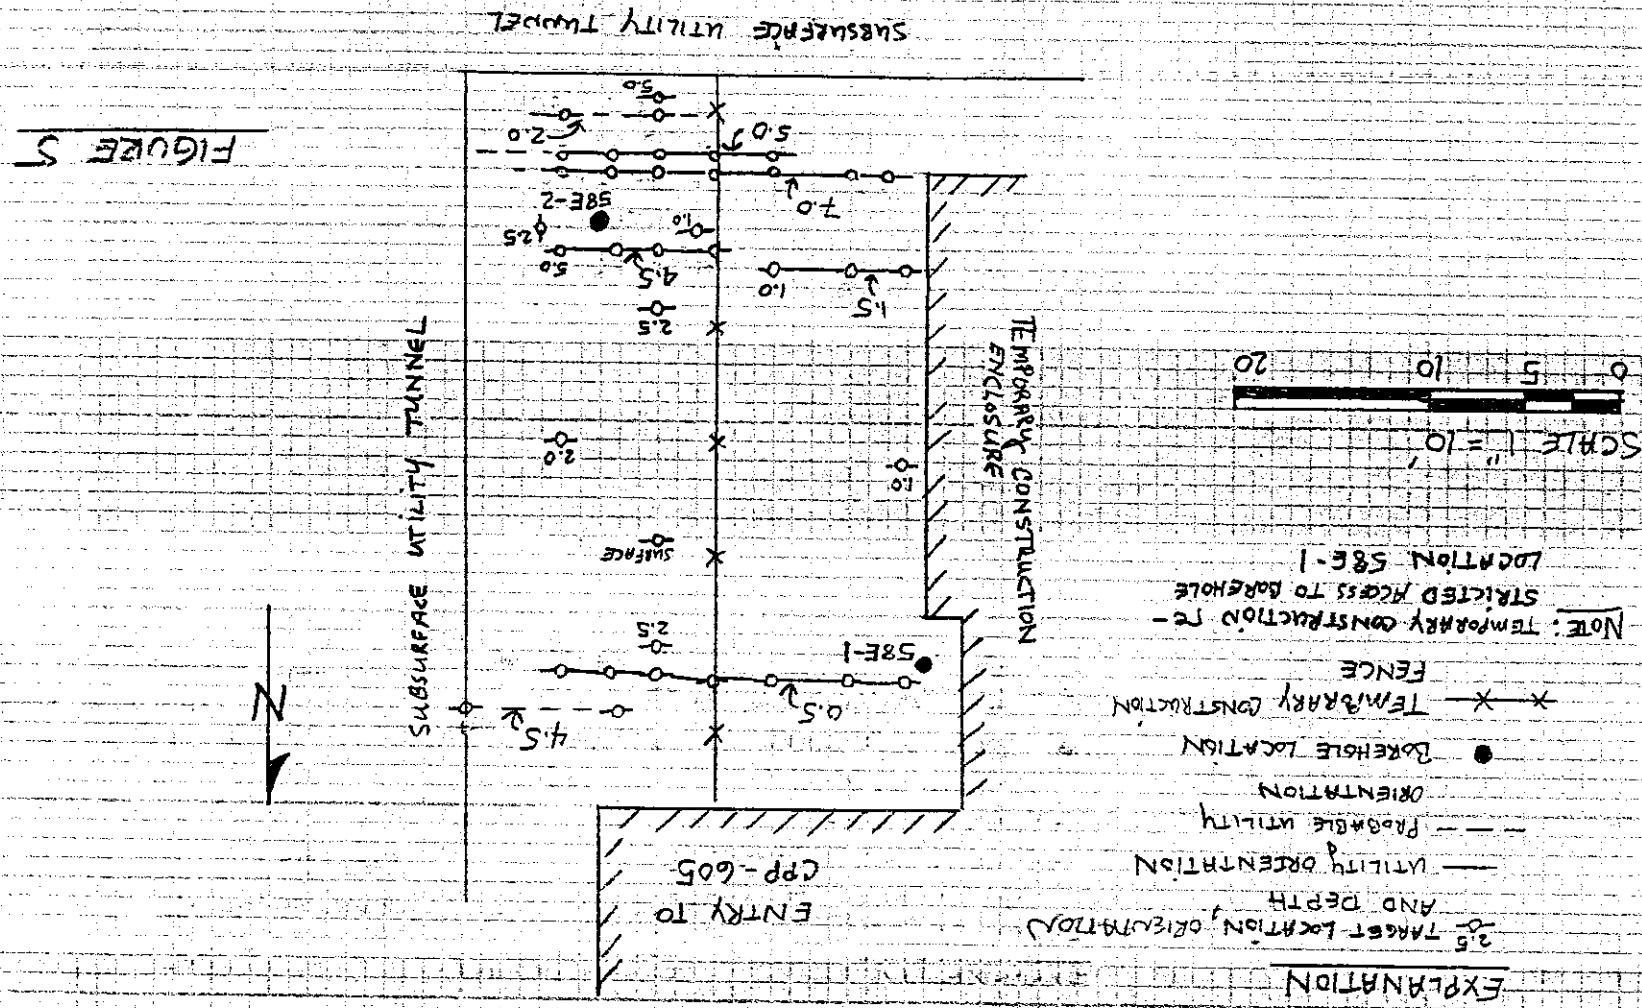 EXPLANATION
2.5 TARGET LOCATION, ORIENTATION
AND DEPTH
UTILITY ORIENTATION
PROBABLE UTILITY
ORIENTATION
BOREHOLE LOCATION
TEMPORARY CONSTRUCTION
FENCE
NOTE: TEMPORARY CONSTRUCTION RE-
STRICTED ACCESS TO BOREHOLE
LOCATION 58E-1
SCALE 1" = 10'
0 5 10 20
ENTRY TO
CPP-605
N
4.5
0.5
58E-1
2.5
SURFACE
1.0
2.0
TEMPORARY CONSTRUCTION
ENCLOSURE
SUBSURFACE UTILITY TUNNEL
2.5
1.5
1.0
4.5
5.0
2.5
1.0
58E-2
7.0
5.0
2.0
5.0
FIGURE 5
SUBSURFACE UTILITY TUNNEL